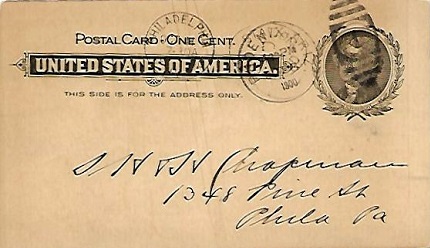 PHILADELPHIA
POSTAL CARD - ONE CENT.
UNITED STATES OF AMERICA.
THIS SIDE IS FOR THE ADDRESS ONLY.
1900
S H & H Chapman
1348 Pine St
Phila Pa